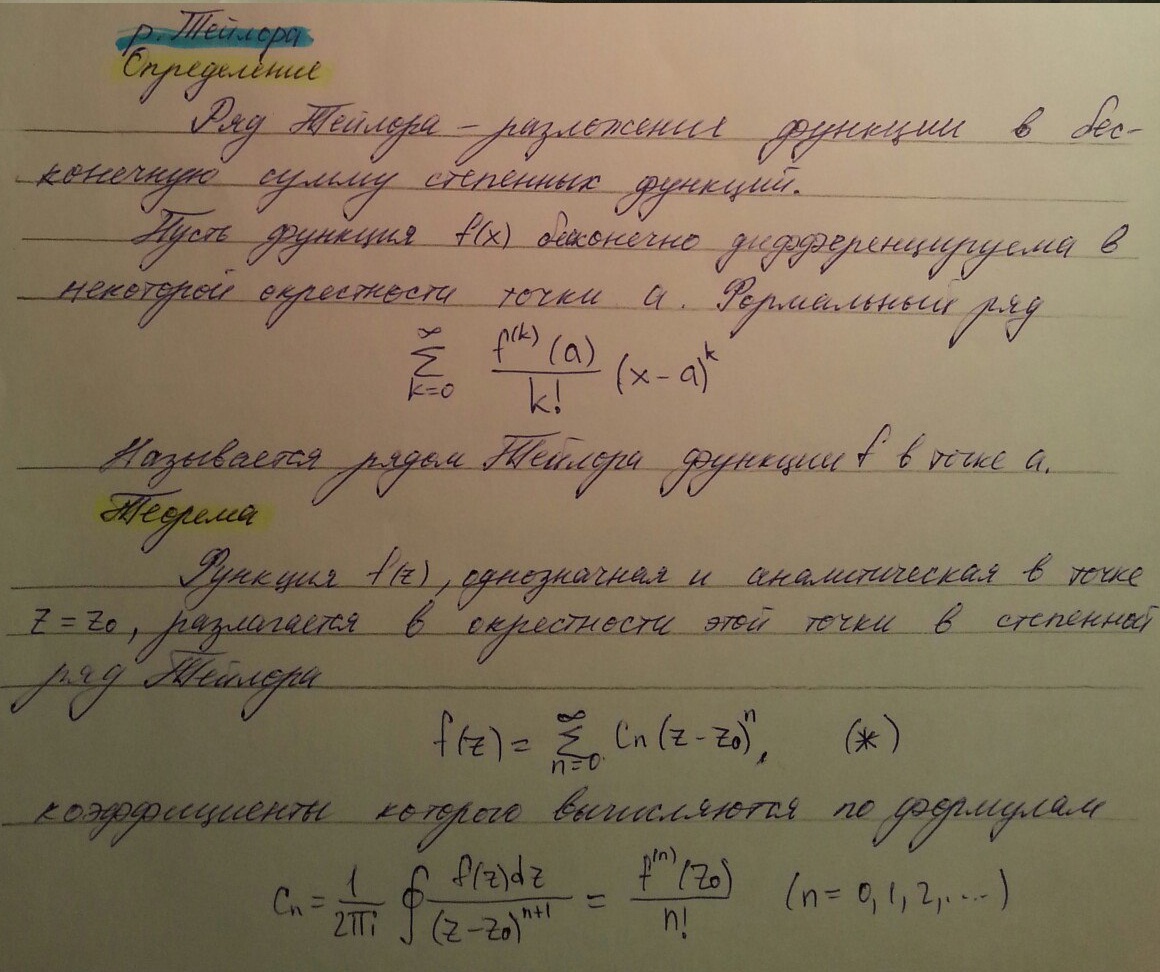 р. Тейлора
Определение
Ряд Тейлора – разложение функции в бес-
конечную сумму степенных функций.
Пусть функция f(x) бесконечно дифференцируема в
некоторой окрестности точки a. Формальный ряд
∑_{k=0}^{∞} \frac{f^{(k)}(a)}{k!} (x-a)^k
Называется рядом Тейлора функции f в точке a.
Теорема
Функция f(z), однозначная и аналитическая в точке
z = z₀, разлагается в окрестности этой точки в степенной
ряд Тейлора
f(z) = ∑_{n=0}^{∞} c_n (z-z₀)^n, (*)
коэффициенты которого вычисляются по формулам
c_n = \frac{1}{2πi} ∮ \frac{f(z)dz}{(z-z₀)^{n+1}} = \frac{f^{(n)}(z₀)}{n!} (n = 0, 1, 2, ...)